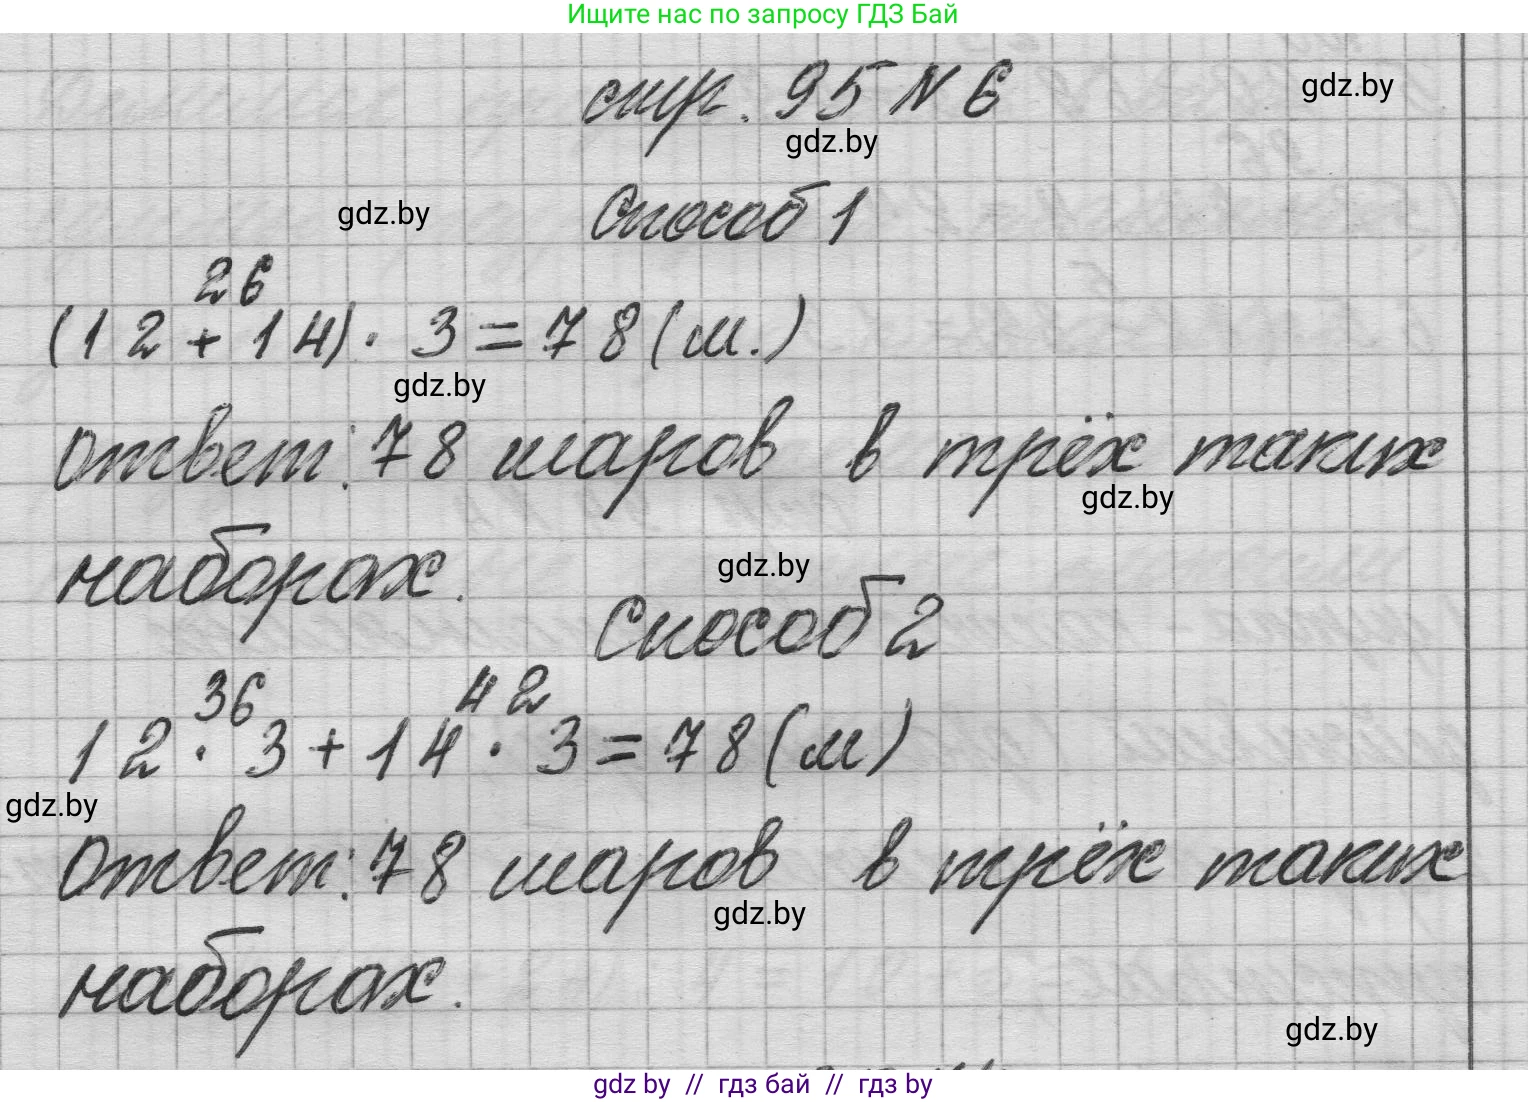 Ищите нас по запросу ГДЗ Бай
стр. 95 N 6
gdz.by
gdz.by
Способ 1
gdz.by
26
(12 + 14) · 3 = 78 (ш.)
gdz.by
Ответ: 78 шаров в трёх таких
gdz.by
наборах.
gdz.by
Способ 2
36 42
12 · 3 + 14 · 3 = 78 (ш)
gdz.by
Ответ: 78 шаров в трёх таких
gdz.by
наборах.
gdz.by
gdz by // гдз бай // гдз by